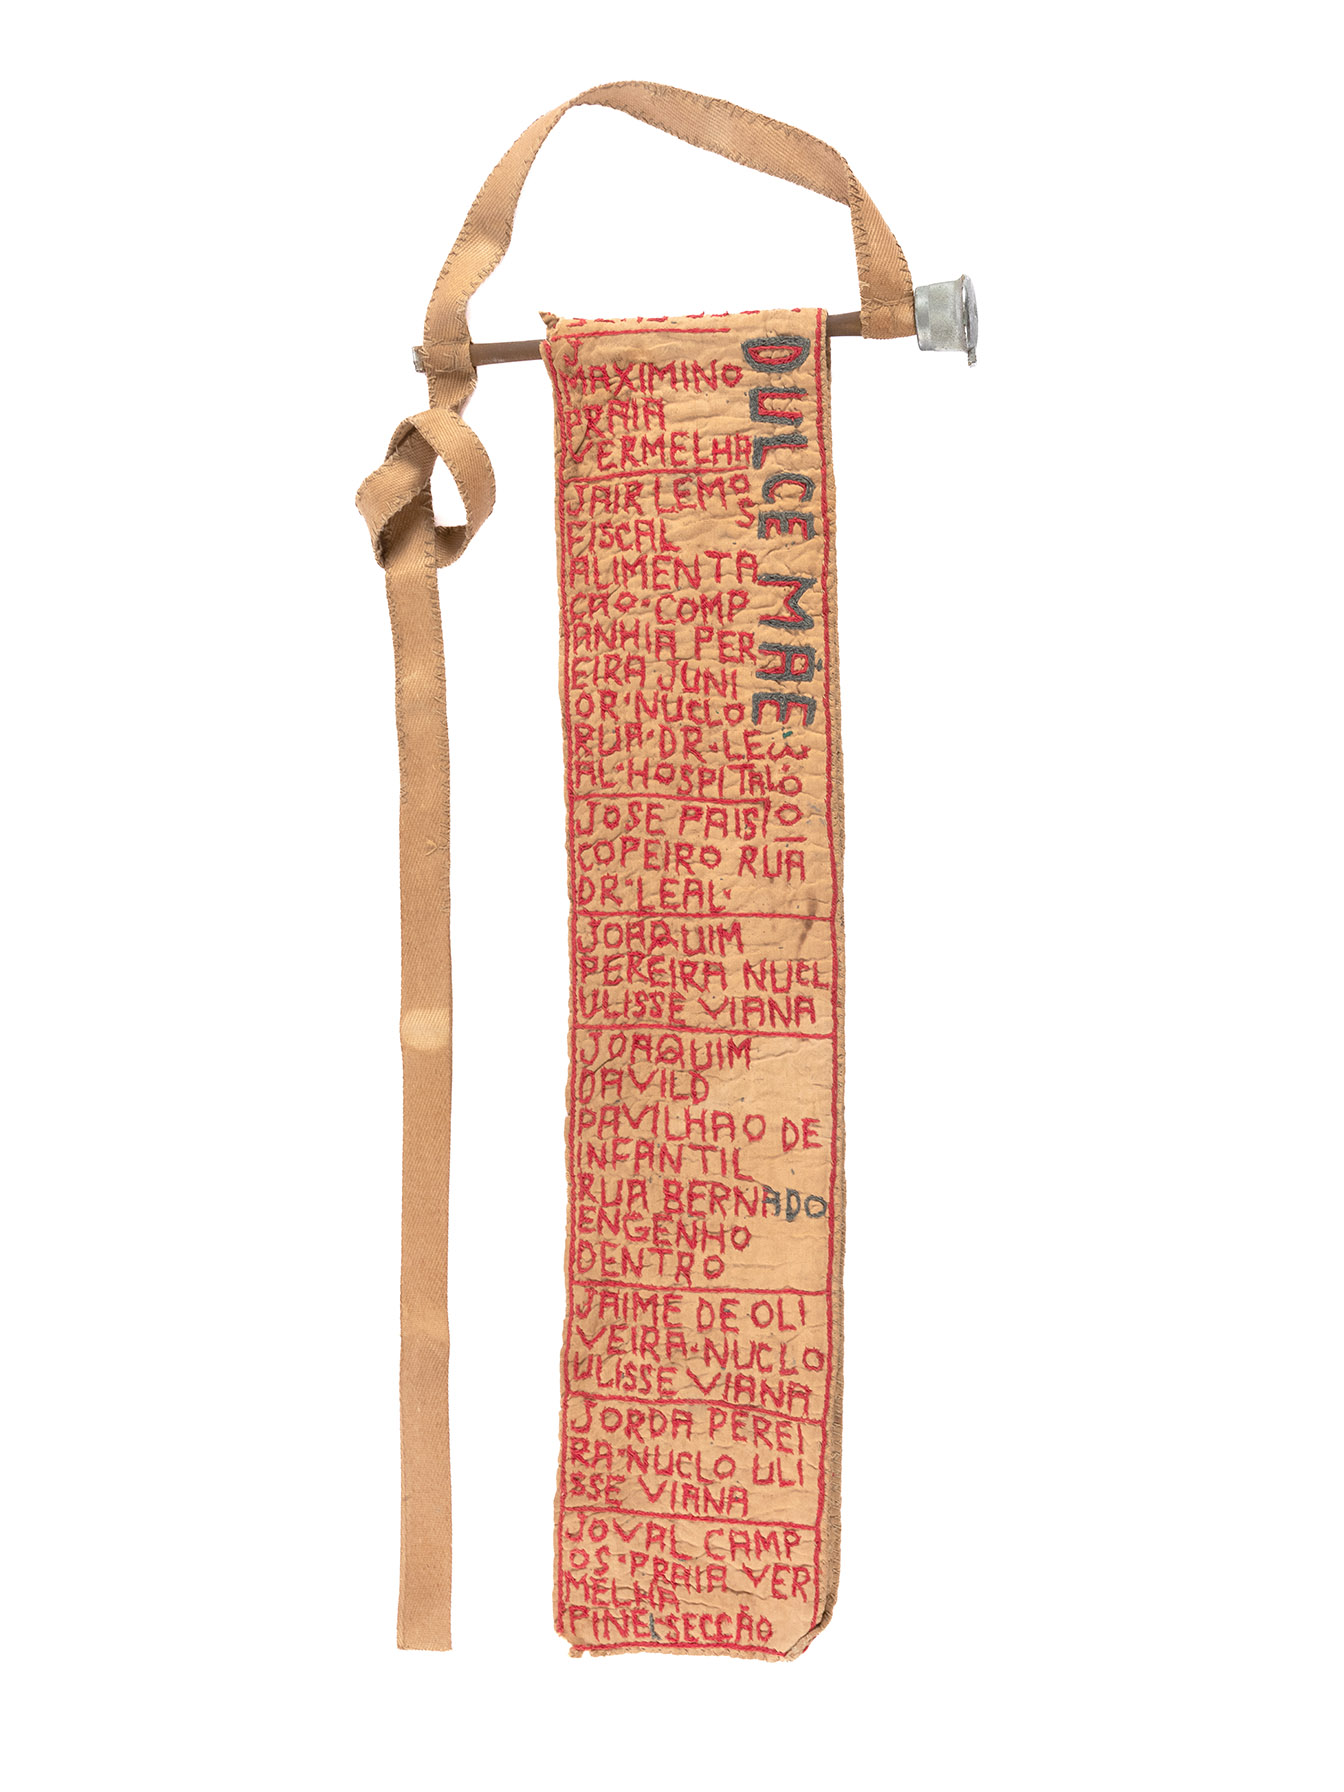 J
MAXIMINO
PRAIA
VERMELHA
JAIR LEMO
S
FISCAL
ALIMENTA
CAO·COMP
ANHIA PER
EIRA JUNI
OR·NUCLO
RUA·DR·LE
AL·HOSPITAL
JOSE PAIS
COPEIRO RUA
DR·LEAL·
JOAQUIM
PEREIRA NUEL
ULISSE VIANA
JOAQUIM
DAVILD
PAVILHAO DE
INFANTIL
RUA BERNADO
ENGENHO
DENTRO
JAIME DE OLI
VEIRA·NUCLO
ULISSE VIANA
JORDA PEREI
RA·NUCLO ULI
SSE VIANA
JOVAL CAMP
OS·PRAIA VER
MELHA
PINEL SECCÃO
DULCE MÃE